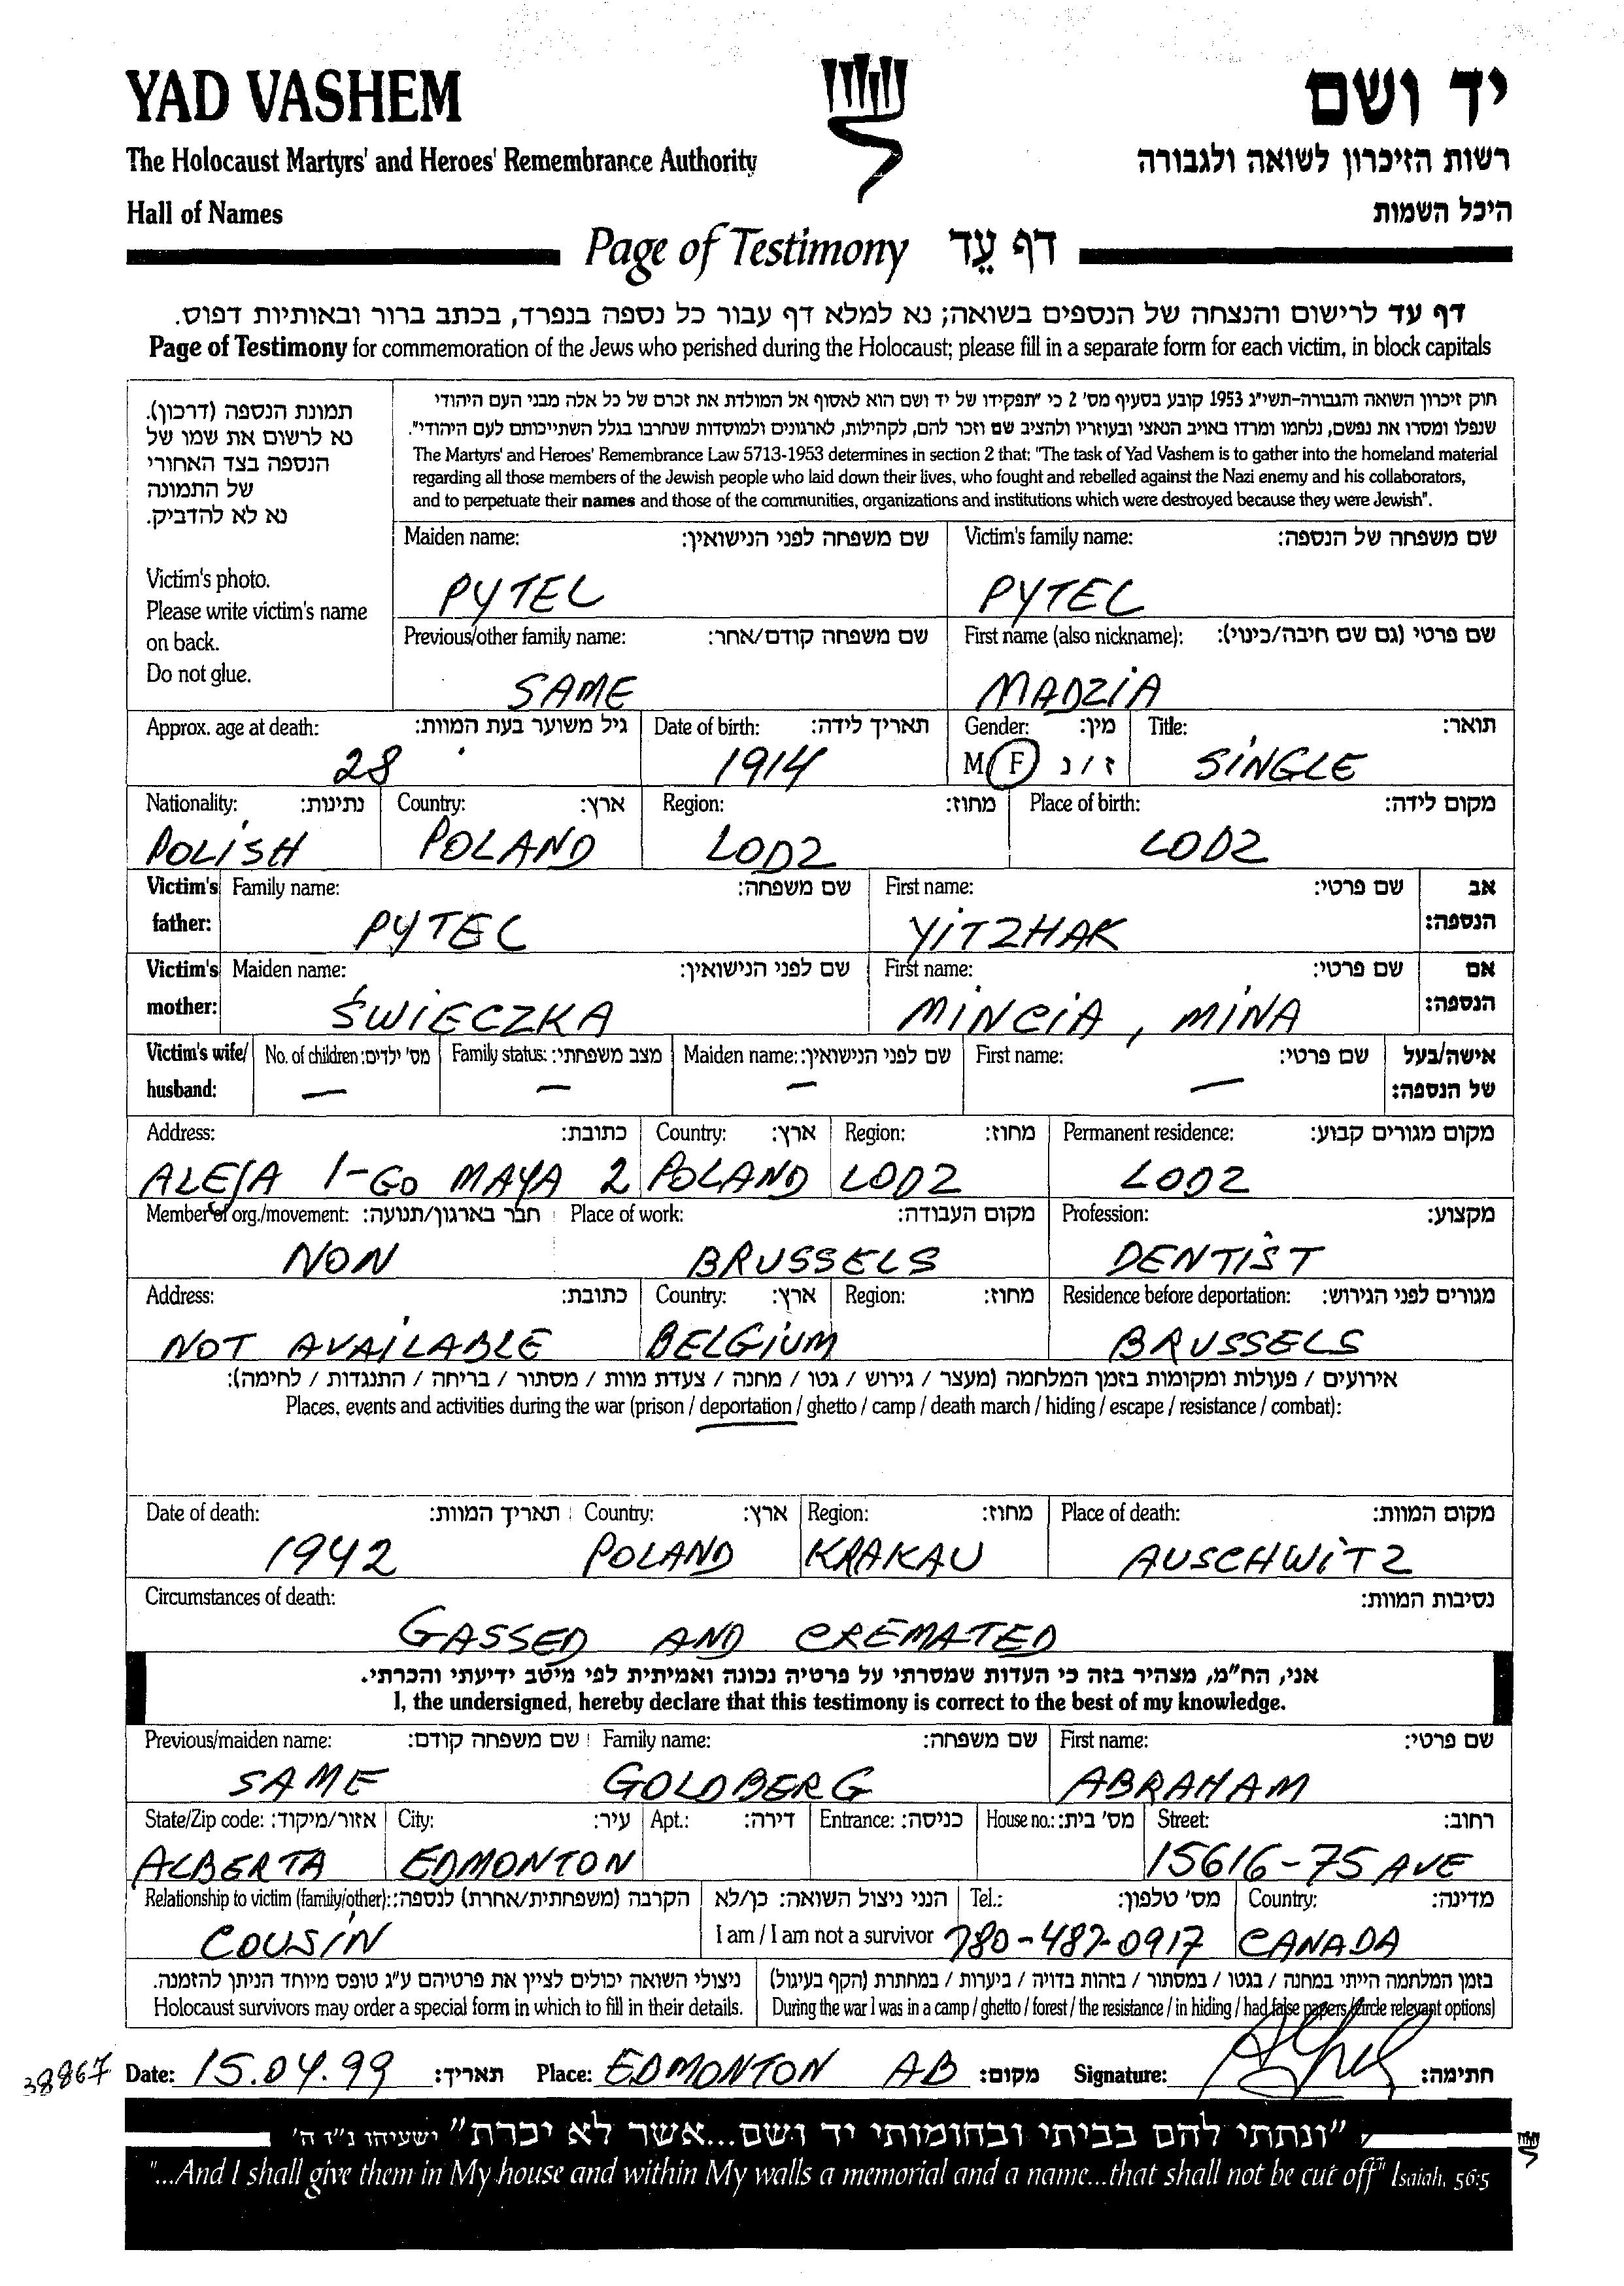 YAD VASHEM
יד ושם
The Holocaust Martyrs' and Heroes' Remembrance Authority
רשות הזיכרון לשואה ולגבורה
Hall of Names
היכל השמות
Page of Testimony דף עֵד
דף עד לרישום והנצחה של הנספים בשואה; נא למלא דף עבור כל נספה בנפרד, בכתב ברור ובאותיות דפוס.
Page of Testimony for commemoration of the Jews who perished during the Holocaust; please fill in a separate form for each victim, in block capitals
תמונת הנספה (דרכון).
נא לרשום את שמו של
הנספה בצד האחורי
של התמונה
נא לא להדביק.
Victim's photo.
Please write victim's name
on back.
Do not glue.
חוק זיכרון השואה והגבורה-תשי"ג 1953 קובע בסעיף מס' 2 כי "תפקידו של יד ושם הוא לאסוף אל המולדת את זכרם של כל אלה מבני העם היהודי
שנפלו ומסרו את נפשם, נלחמו ומרדו באויב הנאצי ובעוזריו ולהציב שם וזכר להם, לקהילות, לארגונים ולמוסדות שנחרבו בגלל השתייכותם לעם היהודי".
The Martyrs' and Heroes' Remembrance Law 5713-1953 determines in section 2 that: "The task of Yad Vashem is to gather into the homeland material
regarding all those members of the Jewish people who laid down their lives, who fought and rebelled against the Nazi enemy and his collaborators,
and to perpetuate their names and those of the communities, organizations and institutions which were destroyed because they were Jewish".
Maiden name: שם משפחה לפני הנישואין: Victim's family name: שם משפחה של הנספה:
PYTEL PYTEL
Previous/other family name: שם משפחה קודם/אחר: First name (also nickname): שם פרטי (גם שם חיבה/כינוי):
SAME MADZIA
Approx. age at death: גיל משוער בעת המוות: Date of birth: תאריך לידה: Gender: מין: Title: תואר:
28 1914 M F ז / נ SINGLE
Nationality: נתינות: Country: ארץ: Region: מחוז: Place of birth: מקום לידה:
POLISH POLAND LODZ LODZ
Victim's Family name: שם משפחה: First name: שם פרטי: אב
father: PYTEL YITZHAK הנספה:
Victim's Maiden name: שם לפני הנישואין: First name: שם פרטי: אם
mother: ŚWIECZKA MINCIA, MINA הנספה:
Victim's wife/ No. of children: מס' ילדים: Family status: מצב משפחתי: Maiden name: שם לפני הנישואין: First name: שם פרטי: אישה/בעל
husband: — — — — של הנספה:
Address: כתובת: Country: ארץ: Region: מחוז: Permanent residence: מקום מגורים קבוע:
ALEJA 1-GO MAYA 2 POLAND LODZ LODZ
Member of org./movement: חבר בארגון/תנועה: Place of work: מקום העבודה: Profession: מקצוע:
NON BRUSSELS DENTIST
Address: כתובת: Country: ארץ: Region: מחוז: Residence before deportation: מגורים לפני הגירוש:
NOT AVAILABLE BELGIUM BRUSSELS
אירועים / פעולות ומקומות בזמן המלחמה (מעצר / גירוש / גטו / מחנה / צעדת מוות / מסתור / בריחה / התנגדות / לחימה):
Places, events and activities during the war (prison / deportation / ghetto / camp / death march / hiding / escape / resistance / combat):
Date of death: תאריך המוות: Country: ארץ: Region: מחוז: Place of death: מקום המוות:
1942 POLAND KRAKAU AUSCHWITZ
Circumstances of death: נסיבות המוות:
GASSED AND CREMATED
אני, הח"מ, מצהיר בזה כי העדות שמסרתי על פרטיה נכונה ואמיתית לפי מיטב ידיעתי והכרתי.
I, the undersigned, hereby declare that this testimony is correct to the best of my knowledge.
Previous/maiden name: שם משפחה קודם: Family name: שם משפחה: First name: שם פרטי:
SAME GOLDBERG ABRAHAM
State/Zip code: אזור/מיקוד: City: עיר: Apt.: דירה: Entrance: כניסה: House no.: מס' בית: Street: רחוב:
ALBERTA EDMONTON 15616-75 AVE
Relationship to victim (family/other): הקרבה (משפחתית/אחרת) לנספה: הנני ניצול השואה: כן/לא Tel.: מס' טלפון: Country: מדינה:
COUSIN I am / I am not a survivor 780-487-0917 CANADA
ניצולי השואה יכולים לציין את פרטיהם ע"ג טופס מיוחד הניתן להזמנה. בזמן המלחמה הייתי במחנה / בגטו / במסתור / בזהות בדויה / ביערות / במחתרת (הקף בעיגול)
Holocaust survivors may order a special form in which to fill in their details. During the war I was in a camp / ghetto / forest / the resistance / in hiding / had false papers (circle relevant options)
38867 Date: 15.04.99 תאריך: Place: EDMONTON AB מקום: Signature: חתימה:
"ונתתי להם בביתי ובחומותי יד ושם...אשר לא יכרת" ישעיהו נ"ו ה'
"...And I shall give them in My house and within My walls a memorial and a name...that shall not be cut off" Isaiah, 56:5